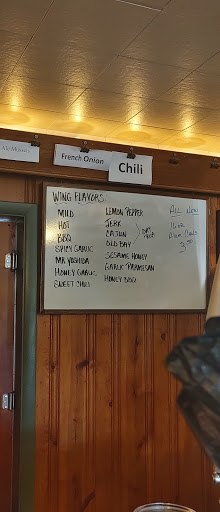 Ale Mussels
French Onion
Chili
WING FLAVORS
MILD
HOT
BBQ
SPICY GARLIC
MR YOSHIDA
HONEY GARLIC
SWEET CHILI
LEMON PEPPER
JERK
CAJUN
OLD BAY
DRY RUB
SESAME HONEY
GARLIC PARMESAN
HONEY BBQ
ALL NEW
3.50